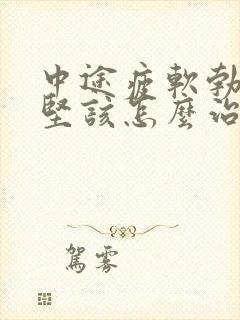 中途疲軟勃
堅該怎麼治
駕霧